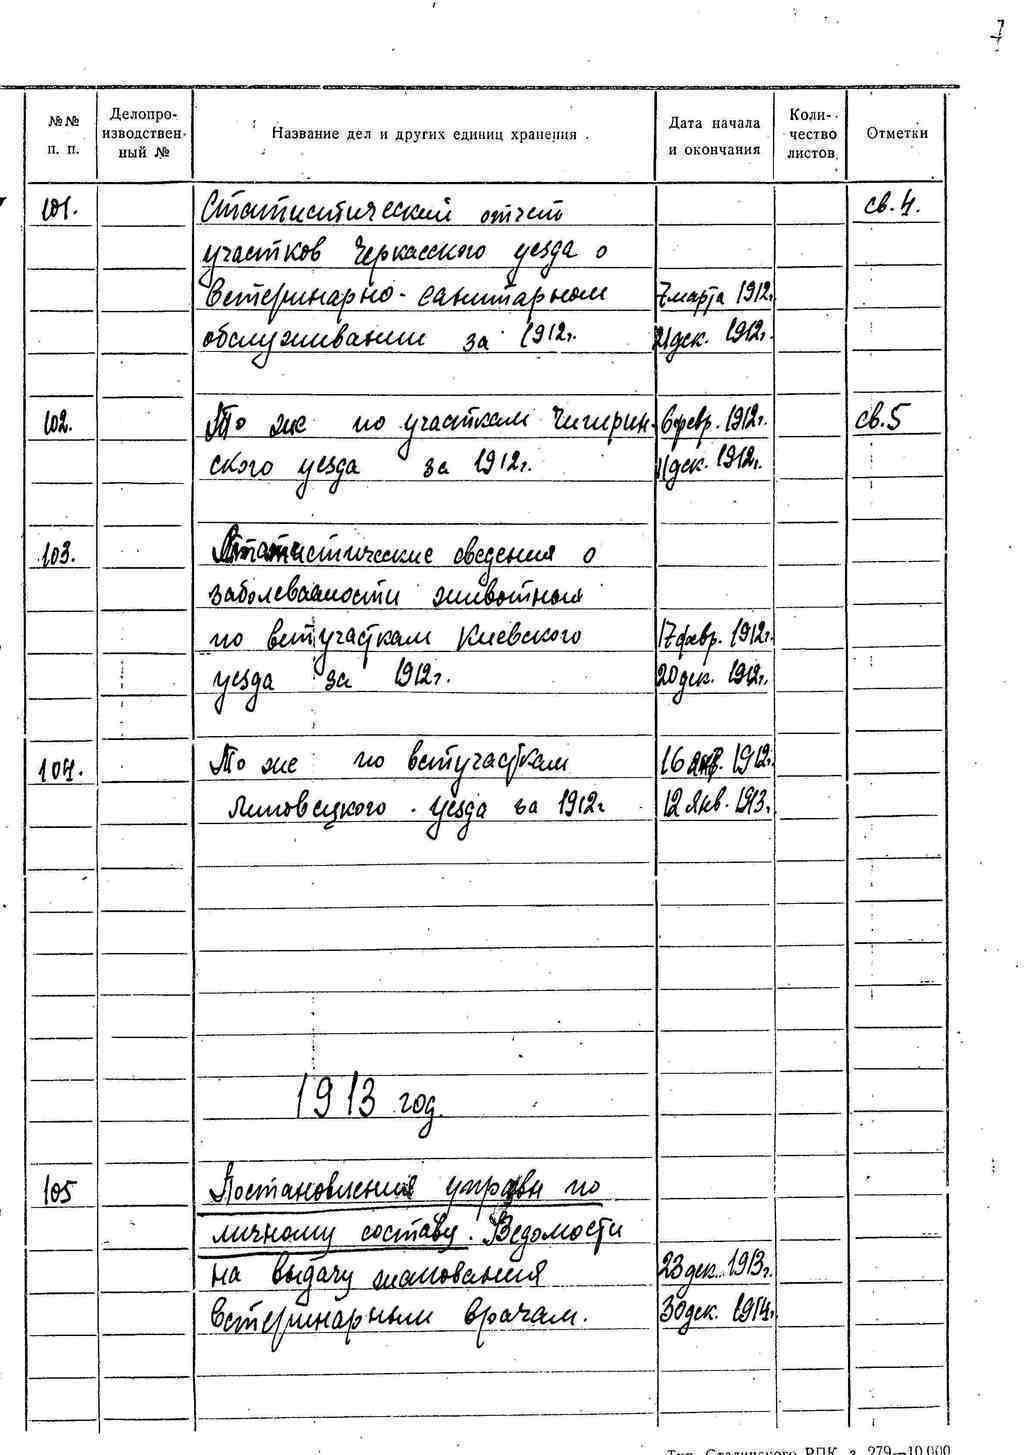 7
№№ п. п.
Делопроизводственный №
Название дел и других единиц хранения
Дата начала и окончания
Количество листов
Отметки
101. Статистический отчет св. 4.
участков Черкасского уезда о
ветеринарно-санитарном 7 марта 1912г.
обслуживании за 1912г. 21 дек. 1912г.
102. То же по участкам Чигирин- 6 февр. 1912г. св. 5
ского уезда за 1912г. 11 дек. 1912г.
103. Статистические сведения о
заболеваемости животных
по ветучасткам Киевского 17 февр. 1912г.
уезда за 1912г. 20 дек. 1912г.
104. То же по ветучасткам 16 янв. 1912г.
Липовецкого уезда за 1912г 12 янв. 1913г.
1913 год.
105 Постановления управы по
личному составу. Ведомости
на выдачу жалования 23 дек. 1913г.
ветеринарным врачам. 30 дек. 1914г.
Тип. Сталинского РПК з. 279—10.000